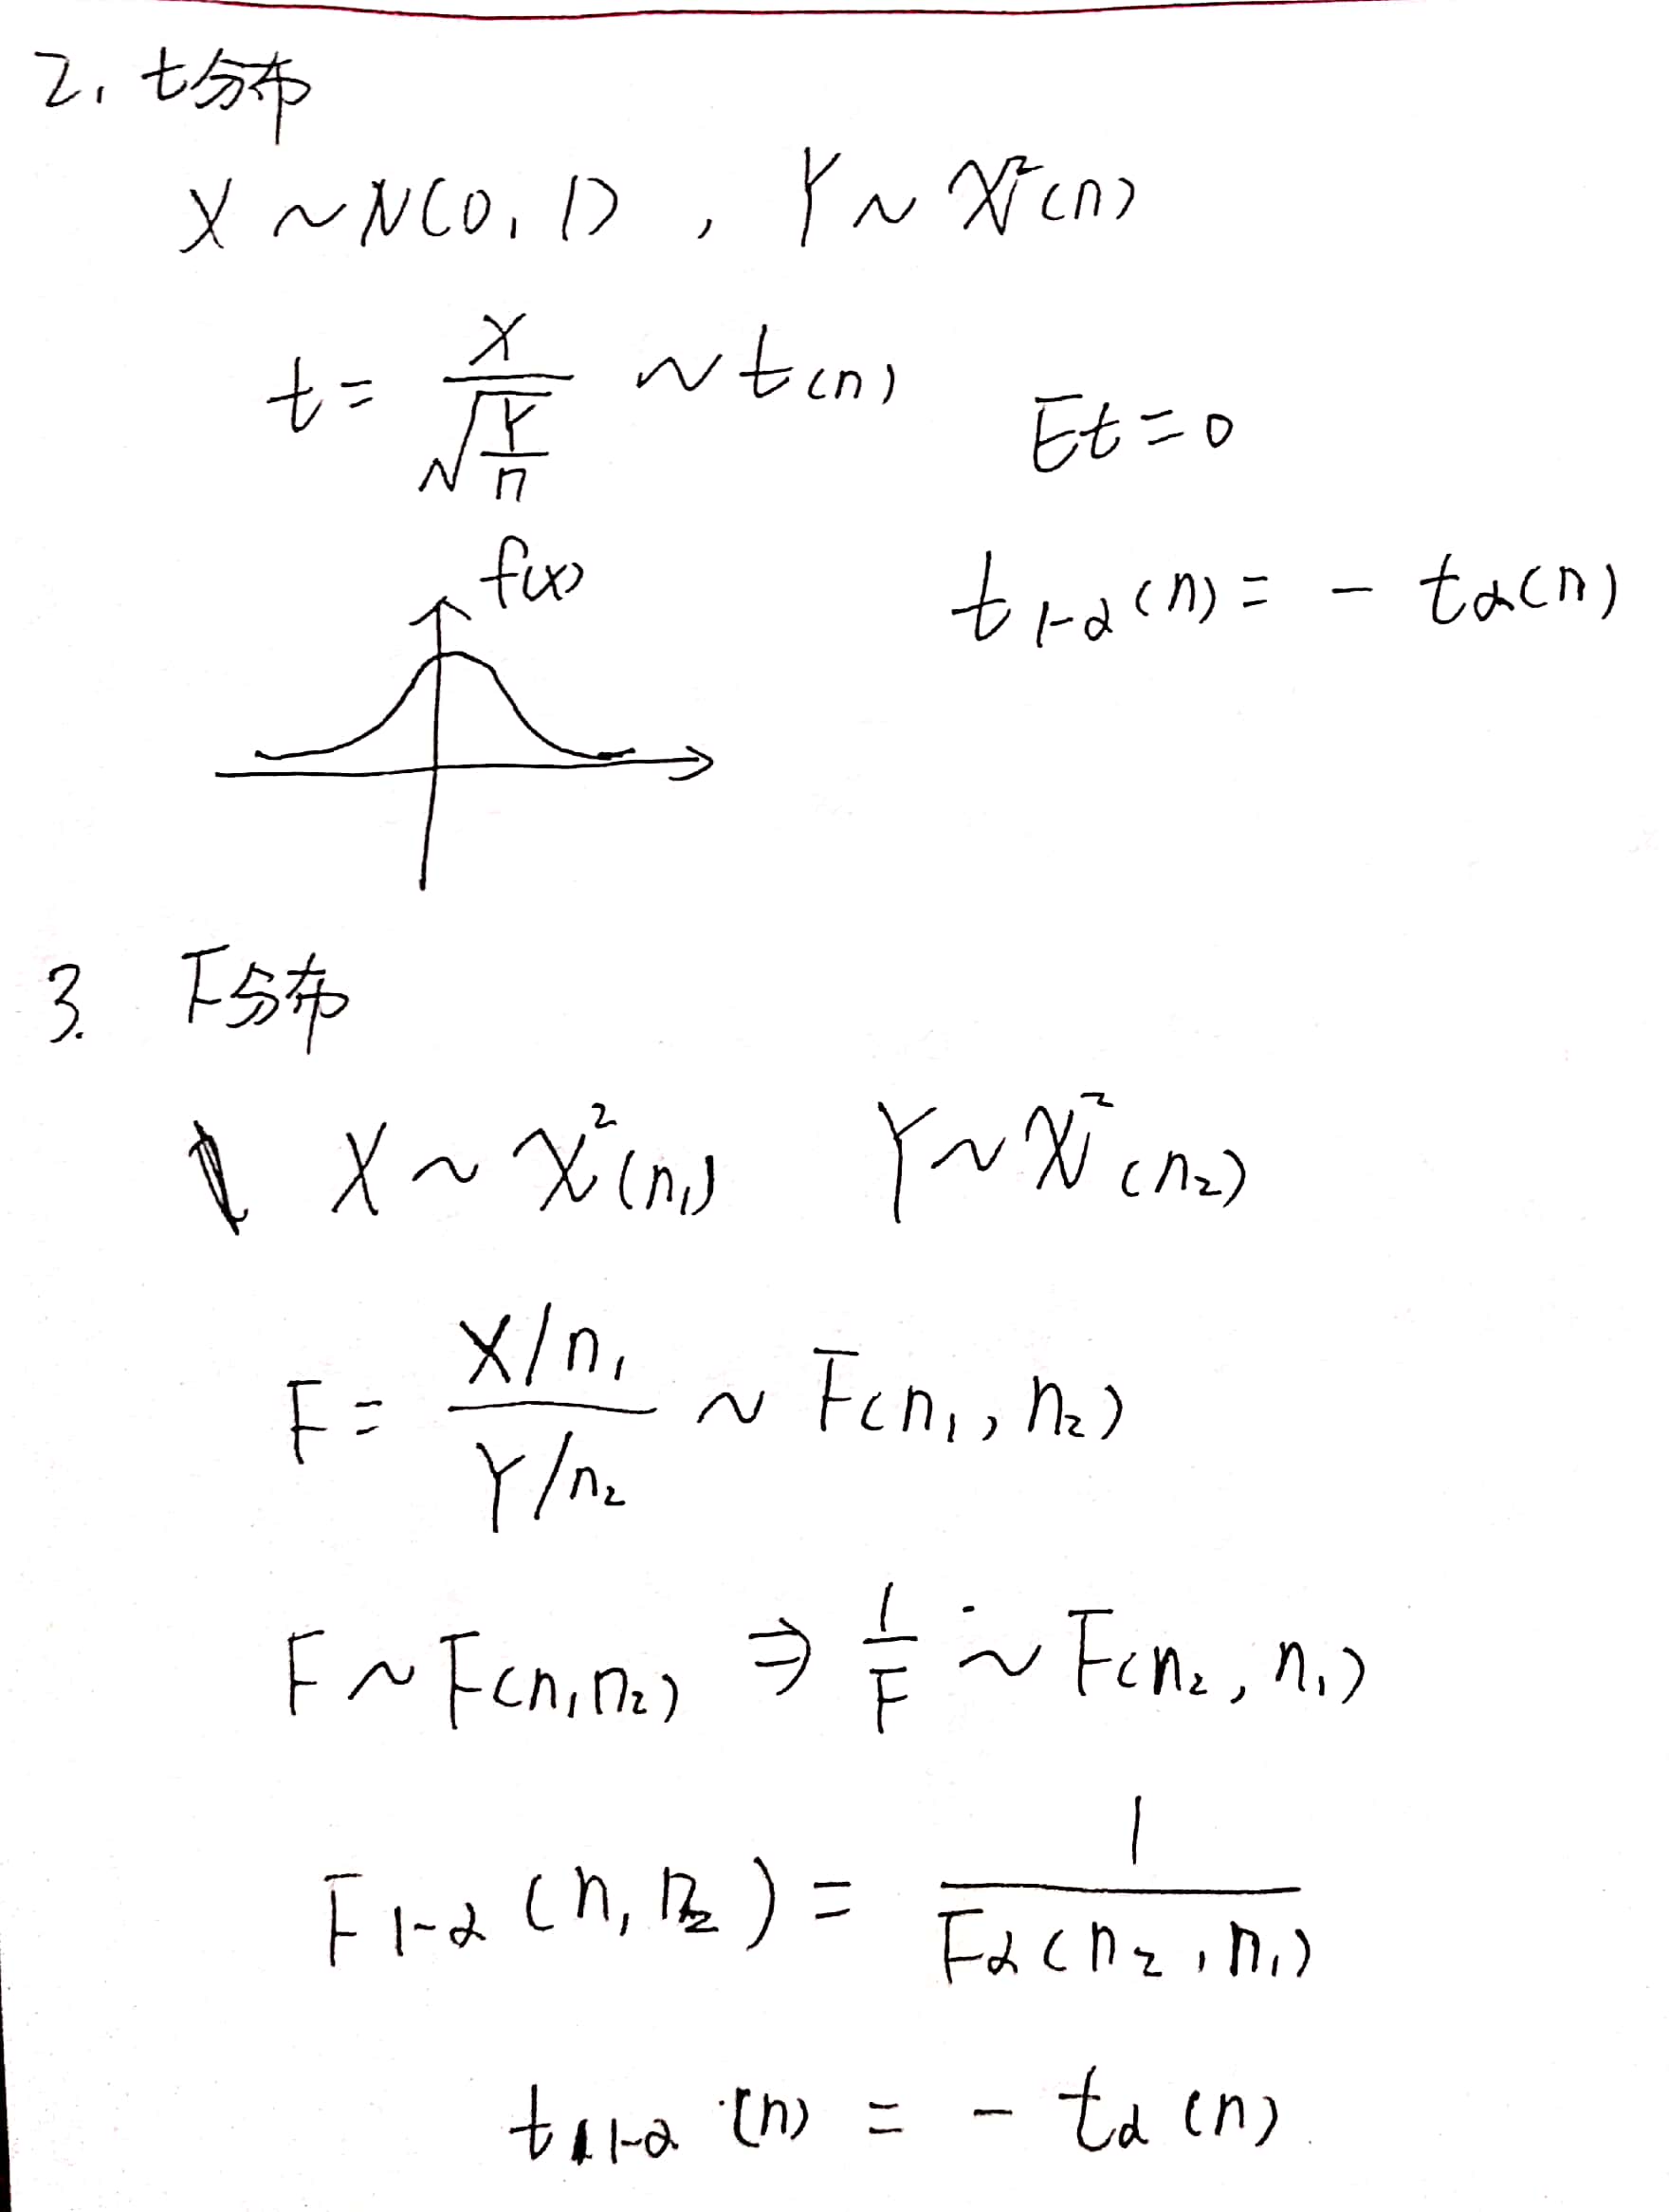 2. t分布
X ~ N(0, 1), Y ~ χ²(n)
t = X / √(Y/n) ~ t(n)
Et = 0
f(x)
t₁₋α(n) = - tα(n)
3. F分布
X ~ χ²(n₁) Y ~ χ²(n₂)
F = (X/n₁) / (Y/n₂) ~ F(n₁, n₂)
F ~ F(n₁, n₂) ⇒ 1/F ~ F(n₂, n₁)
F₁₋α(n₁, n₂) = 1 / Fα(n₂, n₁)
t₁₋α(n) = - tα(n)